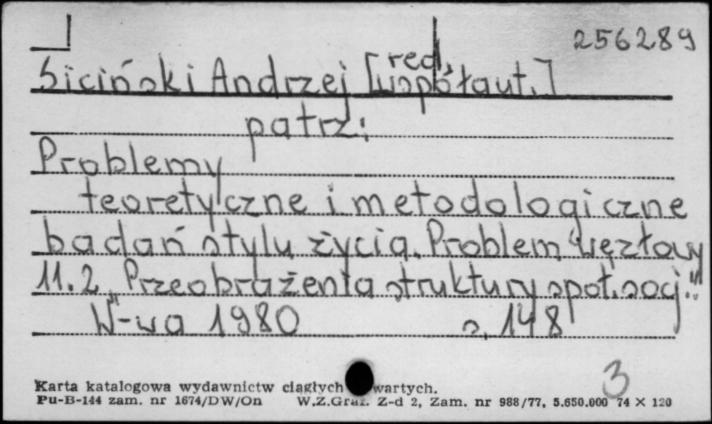 256289
red.
Siciński Andrzej [współaut.]
patrz:
Problemy
teoretyczne i metodologiczne
badań stylu życia. Problem węzłowy
11.2 "Przeobrażenia struktury społ. socj."
W-wa 1980 s. 148
3
Karta katalogowa wydawnictw ciągłych wartych.
Pu-B-144 zam. nr 1674/DW/On W.Z.Graf. Z-d 2, Zam. nr 988/77, 5.650.000 74 X 120